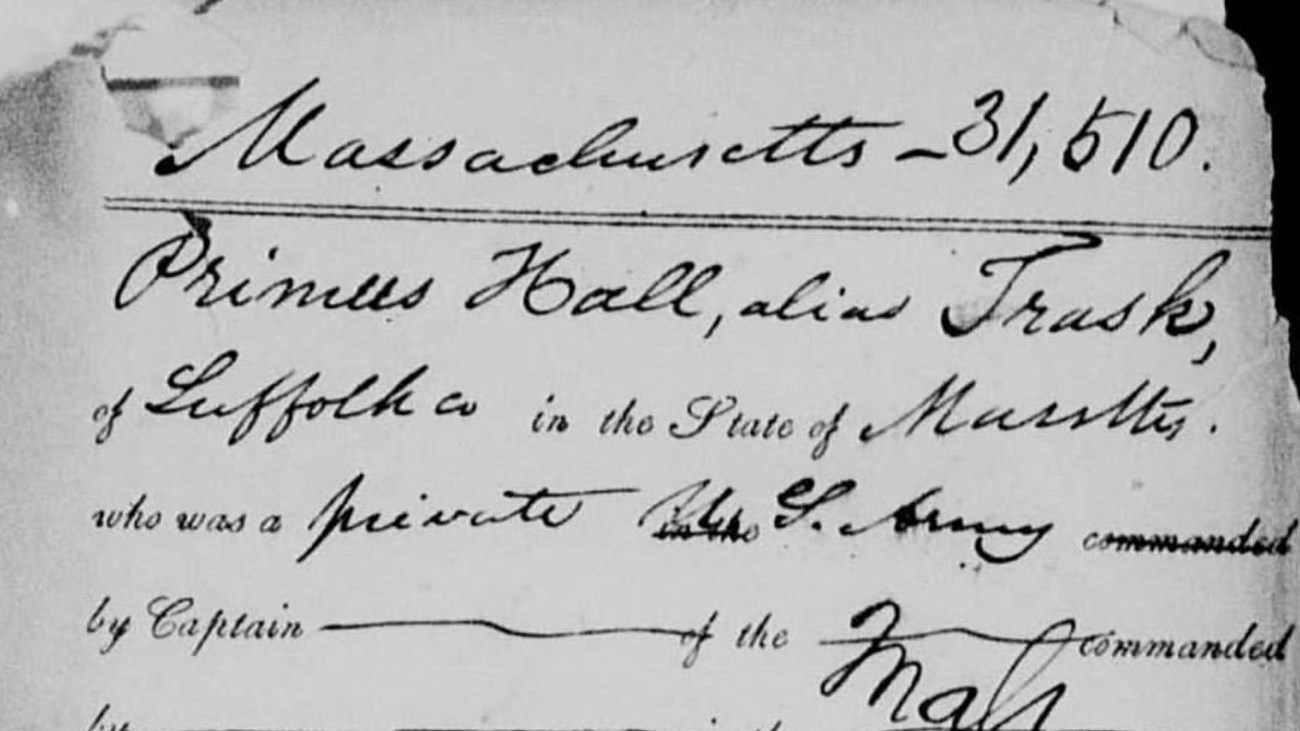 Massachusetts - 31,510.
Primus Hall, alias Trask,
of Suffolk co in the State of Massetts.
who was a private in the U. S. Army commanded
by Captain of the commanded
by in the